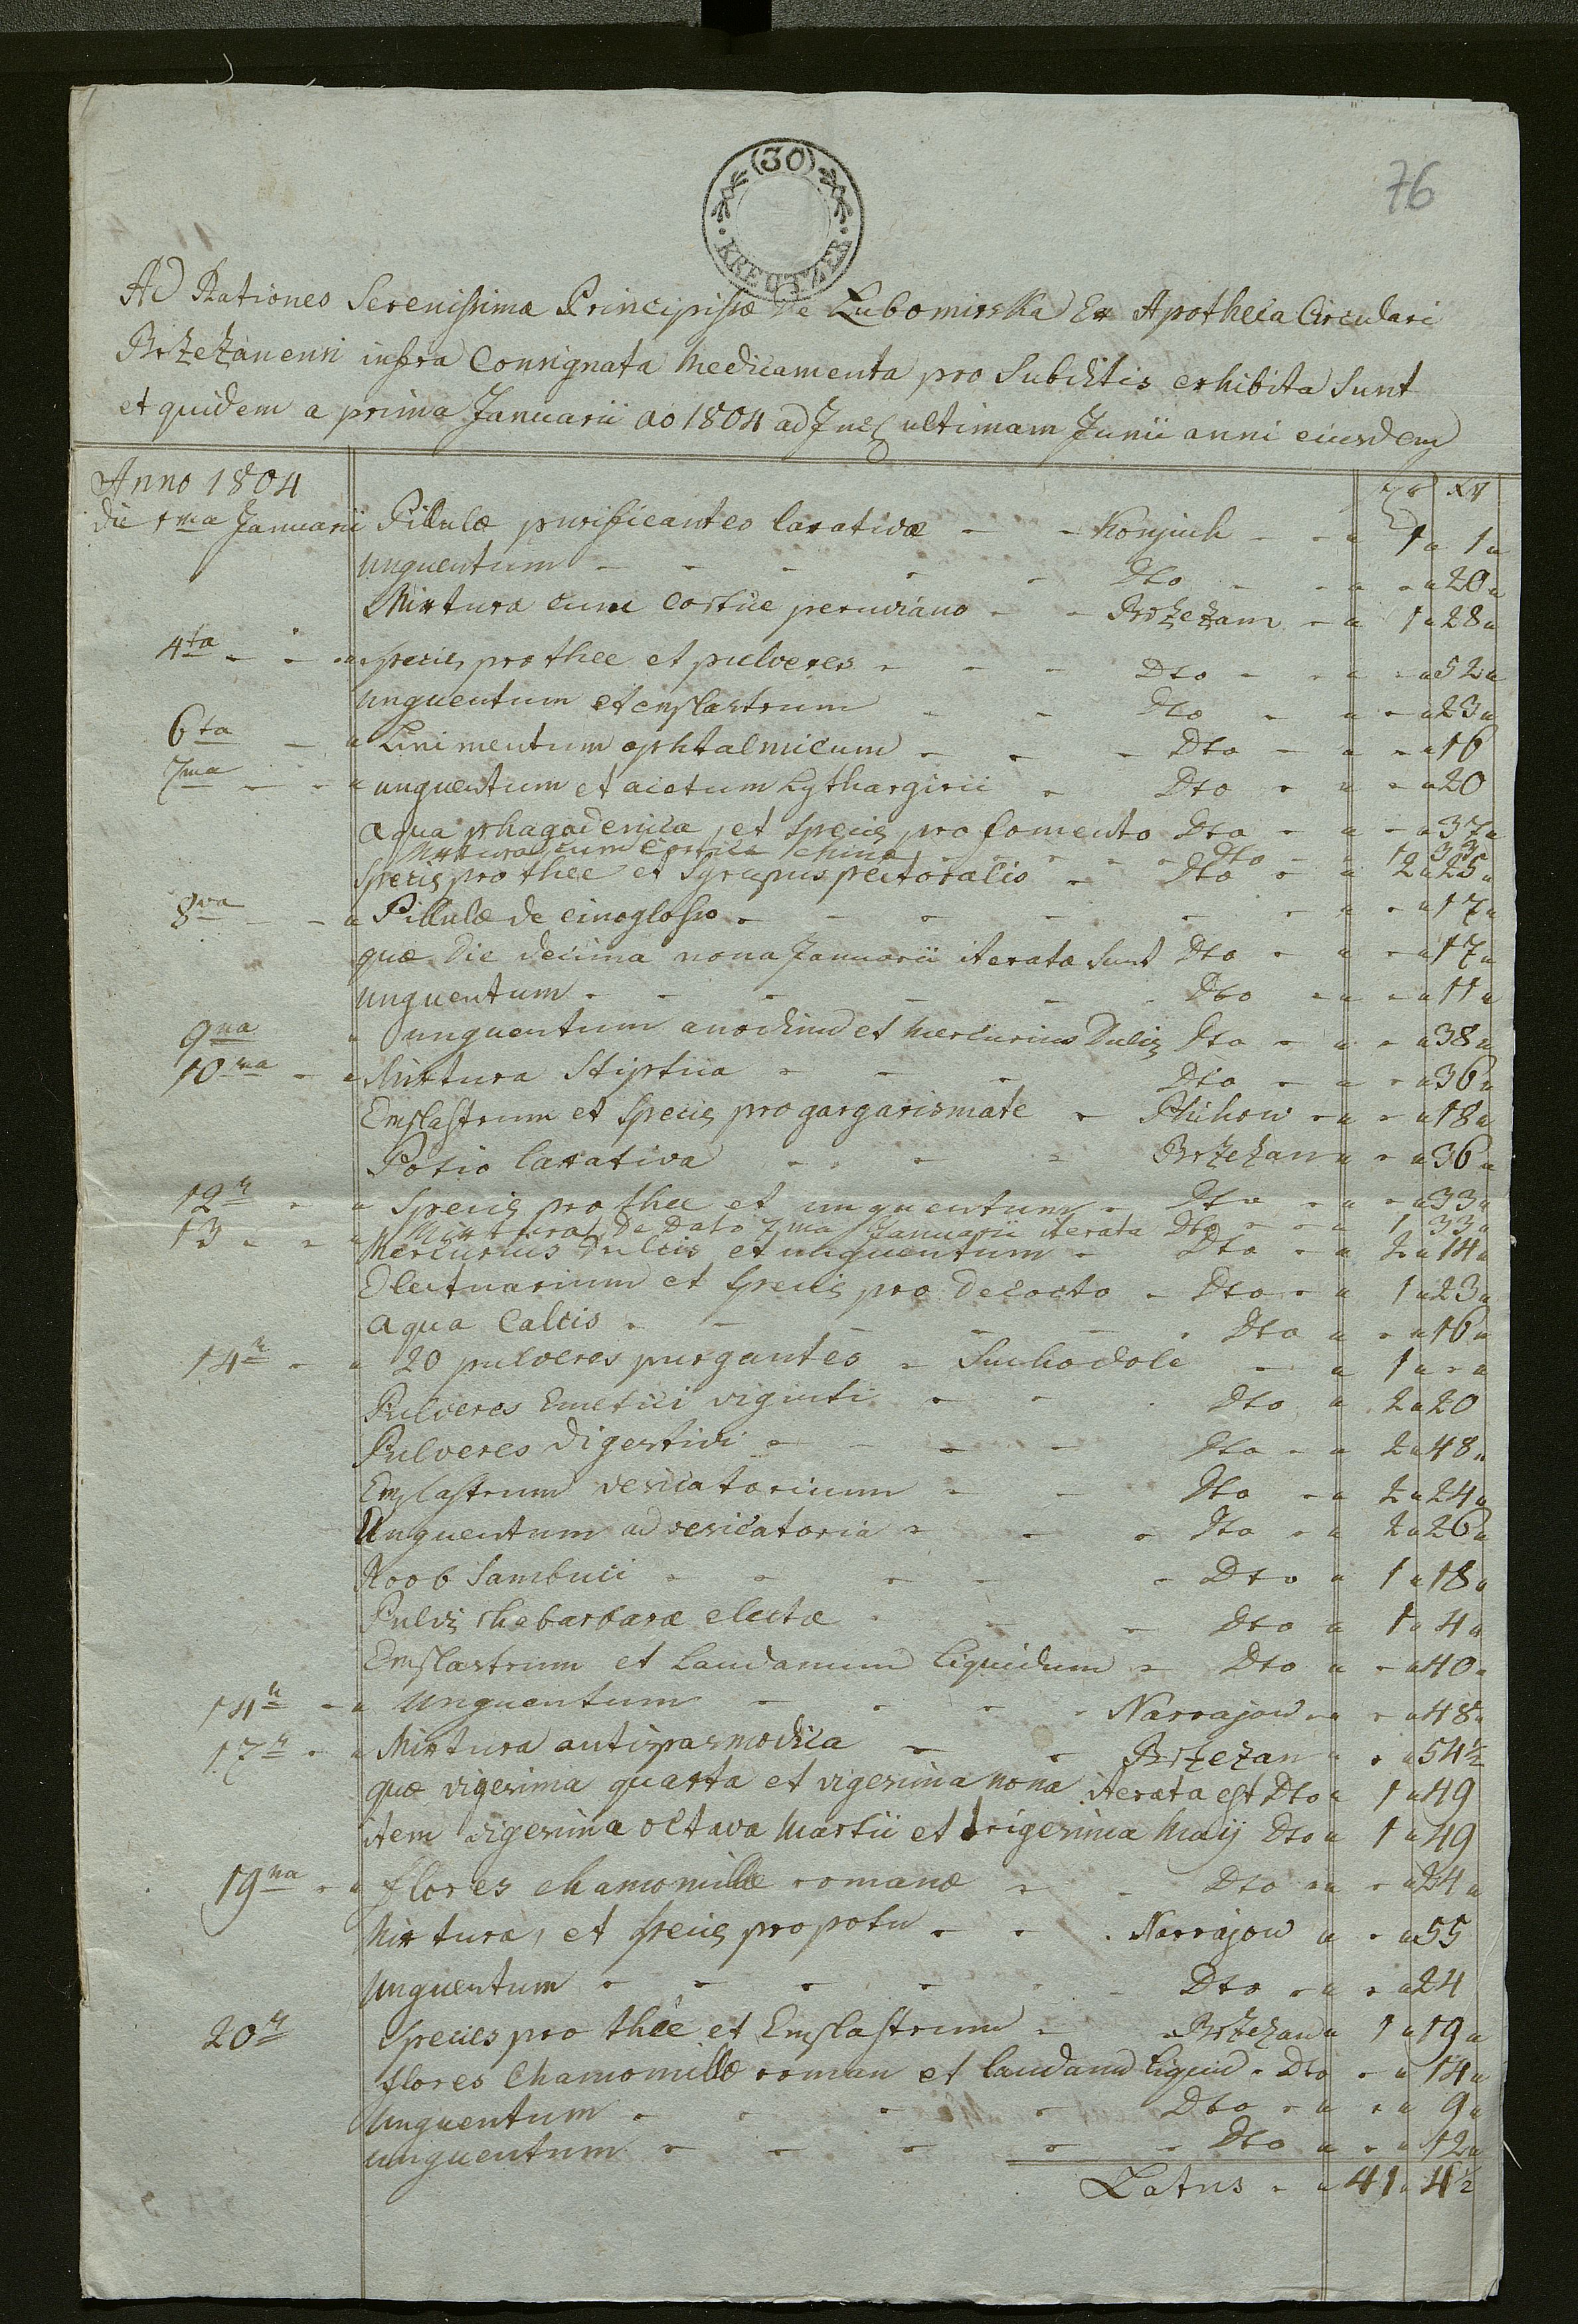 (30)
KREUTZER
76
Ad Rationes Serenissimæ Principissæ de Lubomirska Ex Apotheca Circulari
Brzezanensi infra Consignata Medicamenta pro Subditis exhibita Sunt
et quidem a prima Januarii ao 1804 ad ultimam Junii anni eiusdem
Anno 1804 xr
die 1ma Januarii Pillulæ purificantes laxativæ - - Konjuch - - " 1 " 1 "
Unguentum - - - - - Dto - - " - " 20 "
Mixtura cum cortice peruviano - - Brzezam - " 1 " 28 "
4ta - - " species pro thee et pulveres - - - Dto - - " - " 52 "
Unguentum et emplastrum - - Dto - " - " 23 "
6ta - " Linimentum ophtalmicum - - - Dto - " - " 16
7ma - - " unguentum et acetum Lythargirii - Dto - " - " 20
Aqua phagadenica, et Species pro fomento Dto - " - " 37 "
Mixtura cum Cortice Chinæ - - - - Dto - " 1 " 33 "
Species pro thee et Syrupus pectoralis - Dto - " 2 " 25 "
8va - - " Pillulæ de cinoglosso - - - - - - " - " 17 "
quæ Die decima nona Januarii iteratæ Sunt Dto - " - " 17 "
Unguentum - - - - - Dto - " - " 11 "
9na " unguentum anodinum et Mercurius Dulcis Dto - " - " 38 "
10ma - " Mixtura Stiptica - - - Dto - " - " 36 "
Emplastrum et Species pro gargarismate - Plichow - " - " 18 "
Potio laxativa - - - Brzezan " - " 36 "
12a - " Species pro thee et unguentum - Dto - " - " 33 "
13 - - " Mixtura De Dato 7ma Januarii iterata Dto - - " 1 33 "
Mercurius Dulcis et unguentum - Dto - " 2 " 14 "
Electuarium et Species pro Decocto - Dto - " 1 " 23 "
Aqua Calcis - - - - - - Dto " - " 16 "
14a - " 20 pulveres purgantes - Suchodole - " 1 " - "
Pulveres Emetici viginti - - - Dto " 2 " 20
Pulveres Digestivi - - - - Dto - " 2 " 48 "
Emplastrum vesicatorium - - Dto - " 2 " 24 "
Unguentum ad vesicatoria - - - Dto - " 2 " 26 "
Roob Sambuci - - - - - Dto " 1 " 18 "
Pulvis rhabarbaræ electæ - - - Dto " 1 " 4 "
Emplastrum et Laudanum Liquidum - Dto " - " 40 "
14a - " Unguentum - - - - Narrajow - " - " 48 "
17a - " Mixtura antispasmodica - - Brzezan " - " 54 1/2
quæ vigesima quarta et vigesima nona iterata est Dto " 1 " 49
item vigesima octava Martii et trigesima Maij Dto " 1 " 49
19na - " flores chamomillæ romanæ - - Dto - " - " 24 "
Mixtura, et species pro potu - - - Narrajow " - " 55
Unguentum - - - - - - Dto - " - " 24
20a Species pro thée et Emplastrum - - Brzezan " 1 " 19 "
flores Chamomillæ roman et laudanum liquid - Dto - " 14 "
Unguentum - - - - Dto - " - " 9 "
unguentum - - - - - Dto " - " 12 "
Latus - " 41 " 4 1/2